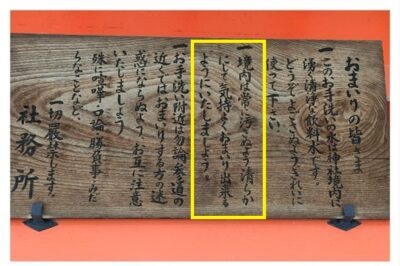 おまいりの皆さま
一このお手洗いの水は神社境内に
湧く清浄な飲料水です。
どうぞよごさぬようきれいに
使って下さい
一境内は常に汚さぬよう清らか
にして気持よくおまいり出来る
ようにいたしましょう。
一お手洗い附近は勿論参道の
近くではおまいりする方の迷
惑にならぬようお互に注意
いたしましょう
殊に喧嘩口論勝負事みだ
らなことなど、
一切厳禁します。
社務所